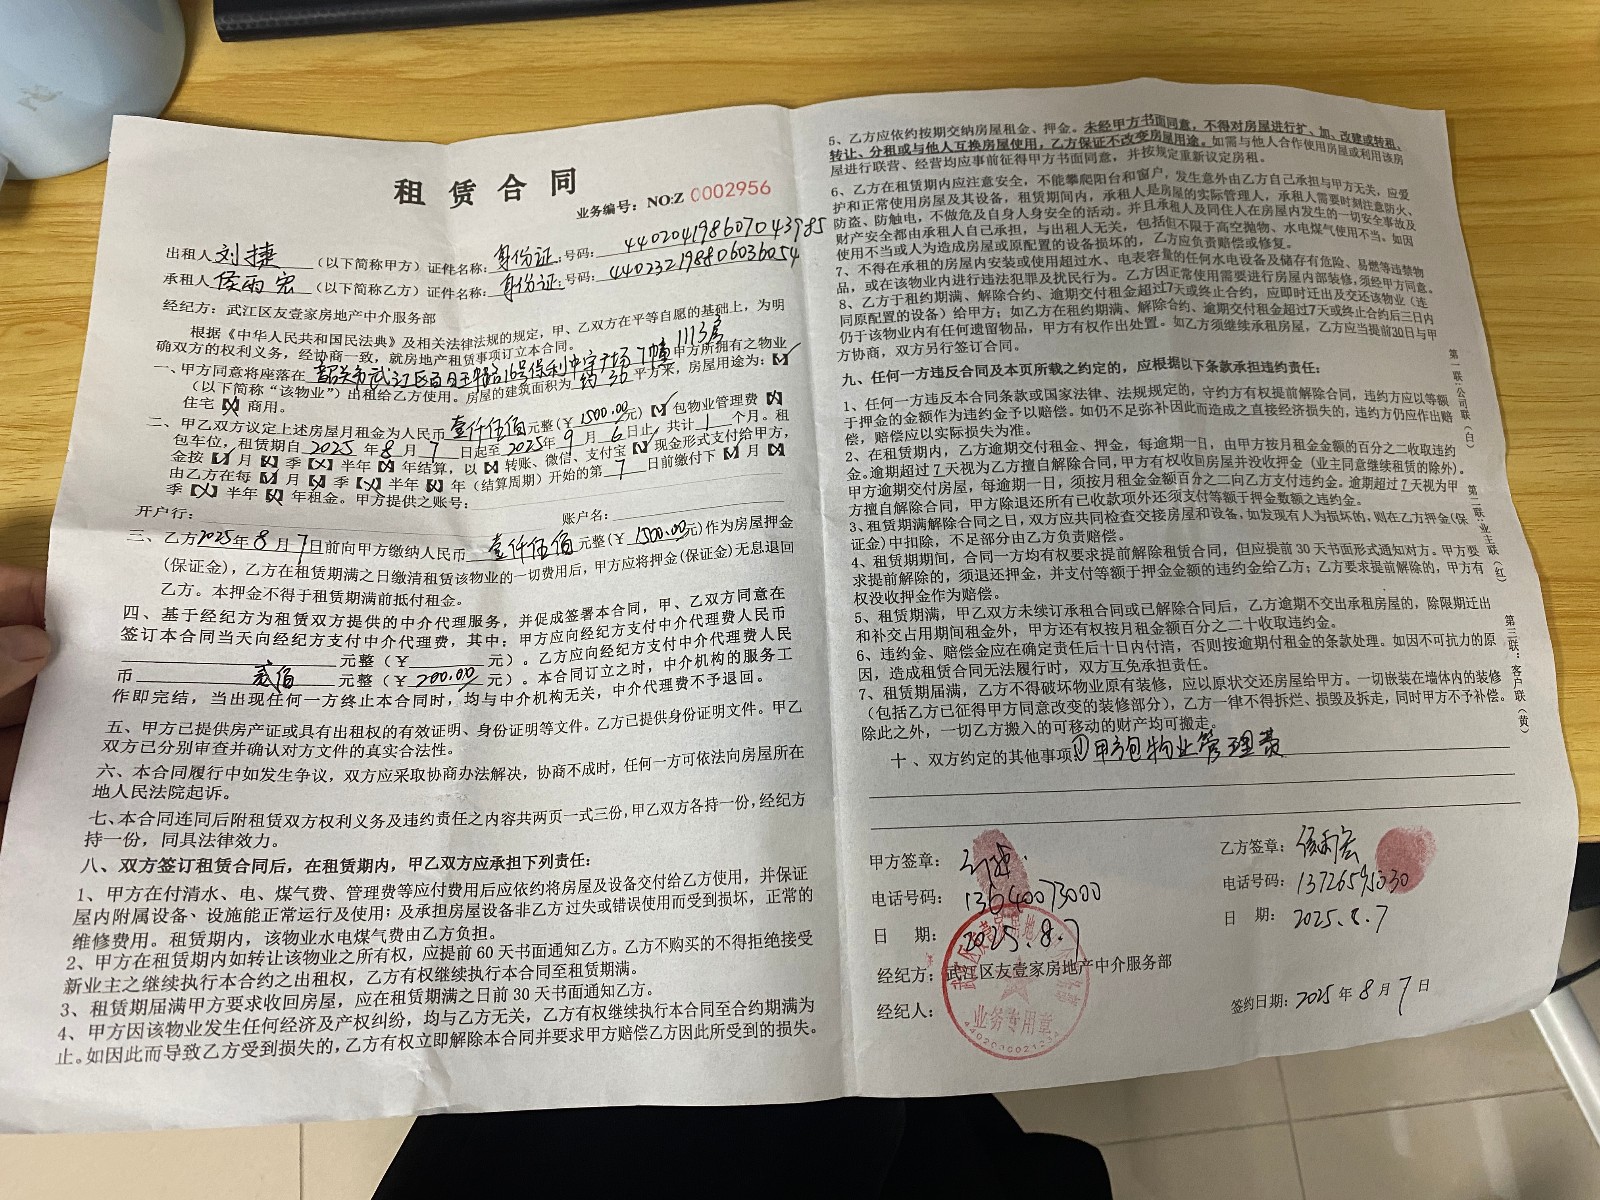 租赁合同
业务编号：NO:Z 0002956
出租人刘捷（以下简称甲方）证件名称：身份证；号码：440204198607043985
承租人侯雨宏（以下简称乙方）证件名称：身份证；号码：440232198806036054
经纪方：武江区友壹家房地产中介服务部
根据《中华人民共和国民法典》及相关法律法规的规定，甲、乙双方在平等自愿的基础上，为明
确双方的权利义务，经协商一致，就房地产租赁事项订立本合同。
一、甲方同意将座落在韶关市武江区百旺中路16号保利中宇广场7幢1113房甲方所拥有之物业
（以下简称“该物业”）出租给乙方使用。房屋的建筑面积为约30平方米，房屋用途为：【✓】
住宅【×】商用。
二、甲乙双方议定上述房屋月租金为人民币壹仟伍佰元整（￥1500.00元）【✓】包物业管理费【×】
包车位，租赁期自2025年8月7日起至2025年9月6日止，共计1个月。租
金按【✓】月【×】季【×】半年【×】年结算，以【×】转账、微信、支付宝【✓】现金形式支付给甲方，
由乙方在每【✓】月【×】季【×】半年【×】年（结算周期）开始的第7日前缴付下【✓】月【×】
季【×】半年【×】年租金。甲方提供之账号：
开户行： 账户名：
三、乙方2025年8月7日前向甲方缴纳人民币壹仟伍佰元整（￥1500.00元）作为房屋押金
（保证金），乙方在租赁期满之日缴清租赁该物业的一切费用后，甲方应将押金（保证金）无息退回
乙方。本押金不得于租赁期满前抵付租金。
四、基于经纪方为租赁双方提供的中介代理服务，并促成签署本合同，甲、乙双方同意在
签订本合同当天向经纪方支付中介代理费，其中：甲方应向经纪方支付中介代理费人民币
元整（￥ 元）。乙方应向经纪方支付中介代理费人民
币 贰佰 元整（￥200.00元）。本合同订立之时，中介机构的服务工
作即完结，当出现任何一方终止本合同时，均与中介机构无关，中介代理费不予退回。
五、甲方已提供房产证或具有出租权的有效证明、身份证明等文件。乙方已提供身份证明文件。甲乙
双方已分别审查并确认对方文件的真实合法性。
六、本合同履行中如发生争议，双方应采取协商办法解决，协商不成时，任何一方可依法向房屋所在
地人民法院起诉。
七、本合同连同后附租赁双方权利义务及违约责任之内容共两页一式三份，甲乙双方各持一份，经纪方
持一份，同具法律效力。
八、双方签订租赁合同后，在租赁期内，甲乙双方应承担下列责任：
1、甲方在付清水、电、煤气费、管理费等应付费用后应依约将房屋及设备交付给乙方使用，并保证
屋内附属设备、设施能正常运行及使用；及承担房屋设备非乙方过失或错误使用而受到损坏，正常的
维修费用。租赁期内，该物业水电煤气费由乙方负担。
2、甲方在租赁期内如转让该物业之所有权，应提前60天书面通知乙方。乙方不购买的不得拒绝接受
新业主之继续执行本合约之出租权，乙方有权继续执行本合同至租赁期满。
3、租赁期届满甲方要求收回房屋，应在租赁期满之日前30天书面通知乙方。
4、甲方因该物业发生任何经济及产权纠纷，均与乙方无关，乙方有权继续执行本合同至合约期满为
止。如因此而导致乙方受到损失的，乙方有权立即解除本合同并要求甲方赔偿乙方因此所受到的损失。
5、乙方应依约按期交纳房屋租金、押金。未经甲方书面同意，不得对房屋进行扩、加、改建或转租、
转让、分租或与他人互换房屋使用，乙方保证不改变房屋用途。如需与他人合作使用房屋或利用该房
屋进行联营、经营均应事前征得甲方书面同意，并按规定重新议定房租。
6、乙方在租赁期内应注意安全，不能攀爬阳台和窗户，发生意外由乙方自己承担与甲方无关，应爱
护和正常使用房屋及其设备，租赁期间内，承租人是房屋的实际管理人，承租人需要时刻注意防火、
防盗、防触电，不做危及自身人身安全的活动。并且承租人及同住人在房屋内发生的一切安全事故及
财产安全都由承租人自己承担，与出租人无关，包括但不限于高空抛物、水电煤气使用不当。如因
使用不当或人为造成房屋或原配置的设备损坏的，乙方应负责赔偿或修复。
7、不得在承租的房屋内安装或使用超过水、电表容量的任何水电设备及储存有危险、易燃等违禁物
品，或在该物业内进行违法犯罪及扰民行为。乙方因正常使用需要进行房屋内部装修，须经甲方同意。
8、乙方于租约期满、解除合约、逾期交付租金超过7天或终止合约，应即时迁出及交还该物业（连
同原配置的设备）给甲方；如乙方在租约期满、解除合约、逾期交付租金超过7天或终止合约后三日内
仍于该物业内有任何遗留物品，甲方有权作出处置。如乙方须继续承租房屋，乙方应当提前30日与甲
方协商，双方另行签订合同。
九、任何一方违反合同及本页所载之约定的，应根据以下条款承担违约责任：
1、任何一方违反本合同条款或国家法律、法规规定的，守约方有权提前解除合同，违约方应以等额
于押金的金额作为违约金予以赔偿。如仍不足弥补因此而造成之直接经济损失的，违约方仍应作出赔
偿，赔偿应以实际损失为准。
2、在租赁期内，乙方逾期交付租金、押金，每逾期一日，由甲方按月租金金额的百分之二收取违约
金。逾期超过7天视为乙方擅自解除合同，甲方有权收回房屋并没收押金（业主同意继续租赁的除外）。
甲方逾期交付房屋，每逾期一日，须按月租金金额百分之二向乙方支付违约金。逾期超过7天视为甲
方擅自解除合同，甲方除退还所有已收款项外还须支付等额于押金数额之违约金。
3、租赁期满解除合同之日，双方应共同检查交接房屋和设备，如发现有人为损坏的，则在乙方押金（保
证金）中扣除，不足部分由乙方负责赔偿。
4、租赁期期间，合同一方均有权要求提前解除租赁合同，但应提前30天书面形式通知对方。甲方要
求提前解除的，须退还押金，并支付等额于押金金额的违约金给乙方；乙方要求提前解除的，甲方有
权没收押金作为赔偿。
5、租赁期满，甲乙双方未续订承租合同或已解除合同后，乙方逾期不交出承租房屋的，除限期迁出
和补交占用期间租金外，甲方还有权按月租金额百分之二十收取违约金。
6、违约金、赔偿金应在确定责任后十日内付清，否则按逾期付租金的条款处理。如因不可抗力的原
因，造成租赁合同无法履行时，双方互免承担责任。
7、租赁期届满，乙方不得破坏物业原有装修，应以原状交还房屋给甲方。一切嵌装在墙体内的装修
（包括乙方已征得甲方同意改变的装修部分），乙方一律不得拆烂、损毁及拆走，同时甲方不予补偿。
除此之外，一切乙方搬入的可移动的财产均可搬走。
十、双方约定的其他事项①甲方包物业管理费
第一联：公司联（白）
第二联：业主联（红）
第三联：客户联（黄）
甲方签章：刘捷
电话号码：13640073000
日 期：2025.8.7
经纪方：武江区友壹家房地产中介服务部
经纪人：
业务专用章
乙方签章：侯雨宏
电话号码：13726595030
日 期：2025.8.7
签约日期：2025年8月7日